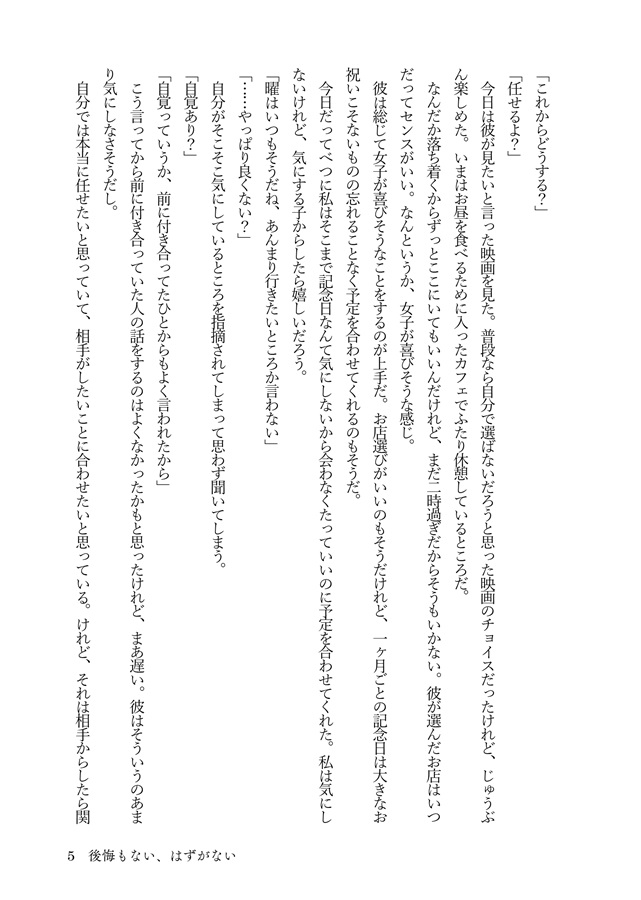 「これからどうする？」
「任せるよ？」
　今日は彼が見たいと言った映画を見た。普段なら自分で選ばないだろうと思った映画のチョイスだったけれど、じゅうぶ
ん楽しめた。いまはお昼を食べるために入ったカフェでふたり休憩しているところだ。
　なんだか落ち着くからずっとここにいてもいいんだけれど、まだ二時過ぎだからそうもいかない。彼が選んだお店はいつ
だってセンスがいい。なんというか、女子が喜びそうな感じ。
　彼は総じて女子が喜びそうなことをするのが上手だ。お店選びがいいのもそうだけれど、一ヶ月ごとの記念日は大きなお
祝いこそないものの忘れることなく予定を合わせてくれるのもそうだ。
　今日だってべつに私はそこまで記念日なんて気にしないから会わなくたっていいのに予定を合わせてくれた。私は気にし
ないけれど、気にする子からしたら嬉しいだろう。
「曜はいつもそうだね、あんまり行きたいところか言わない」
「……やっぱり良くない？」
　自分がそこそこ気にしているところを指摘されてしまって思わず聞いてしまう。
「自覚あり？」
「自覚っていうか、前に付き合ってたひとからもよく言われたから」
　こう言ってから前に付き合っていた人の話をするのはよくなかったかもと思ったけれど、まあ遅い。彼はそういうのあま
り気にしなさそうだし。
　自分では本当に任せたいと思っていて、相手がしたいことに合わせたいと思っている。けれど、それは相手からしたら関
5　後悔もない、はずがない